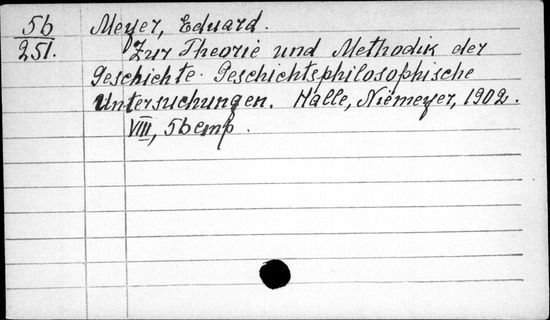 56 Meyer, Eduard.
251. Zur Theorie und Methodik der
Geschichte. Geschichtsphilosophische
Untersuchungen. Halle, Niemeyer, 1902.
VIII, 56 стр.